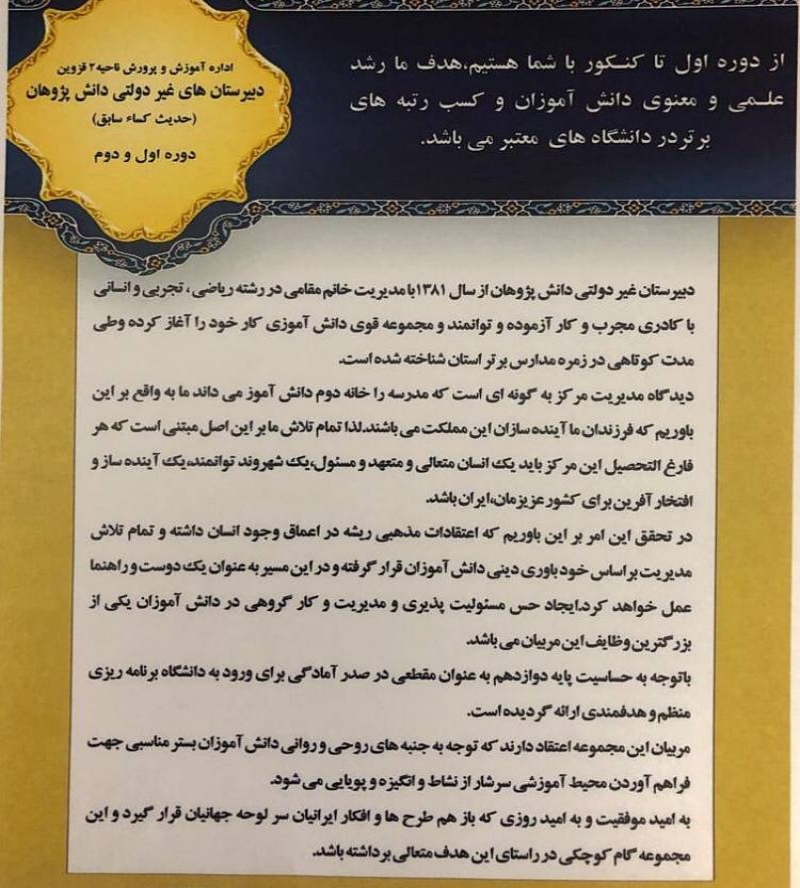 اداره آموزش و پرورش ناحیه۲ قزوین
دبیرستان های غیر دولتی دانش پژوهان
(حدیث کساء سابق)
دوره اول و دوم
از دوره اول تا کنکور با شما هستیم،هدف ما رشد
علمی و معنوی دانش آموزان و کسب رتبه های
برتردر دانشگاه های معتبر می باشد.
دبیرستان غیر دولتی دانش پژوهان از سال ۱۳۸۱با مدیریت خانم مقامی در رشته ریاضی ، تجربی و انسانی
با کادری مجرب و کار آزموده و توانمند و مجموعه قوی دانش آموزی کار خود را آغاز کرده وطی
مدت کوتاهی در زمره مدارس برتر استان شناخته شده است.
دیدگاه مدیریت مرکز به گونه ای است که مدرسه را خانه دوم دانش آموز می داند ما به واقع بر این
باوریم که فرزندان ما آینده سازان این مملکت می باشند.لذا تمام تلاش ما بر این اصل مبتنی است که هر
فارغ التحصیل این مرکز باید یک انسان متعالی و متعهد و مسئول،یک شهروند توانمند،یک آینده ساز و
افتخار آفرین برای کشور عزیزمان،ایران باشد.
در تحقق این امر بر این باوریم که اعتقادات مذهبی ریشه در اعماق وجود انسان داشته و تمام تلاش
مدیریت براساس خود باوری دینی دانش آموزان قرار گرفته و در این مسیر به عنوان یک دوست و راهنما
عمل خواهد کرد.ایجاد حس مسئولیت پذیری و مدیریت و کار گروهی در دانش آموزان یکی از
بزرگترین وظایف این مربیان می باشد.
باتوجه به حساسیت پایه دوازدهم به عنوان مقطعی در صدر آمادگی برای ورود به دانشگاه برنامه ریزی
منظم و هدفمندی ارائه گردیده است.
مربیان این مجموعه اعتقاد دارند که توجه به جنبه های روحی و روانی دانش آموزان بستر مناسبی جهت
فراهم آوردن محیط آموزشی سرشار از نشاط و انگیزه و پویایی می شود.
به امید موفقیت و به امید روزی که باز هم طرح ها و افکار ایرانیان سر لوحه جهانیان قرار گیرد و این
مجموعه گام کوچکی در راستای این هدف متعالی برداشته باشد.